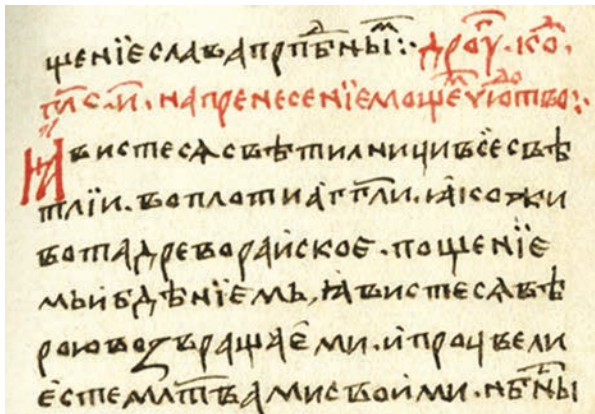 щенїе слава прпⷣбныⷨ:· дрꙋгⷪ҇ꙋ. коⷣ.
глⷭ҇с.и҃. на пренесенїе мощеⷨ ꙋюⷣ тво:·
Ꙗвистеся свѣтилници всесвѣ
тлїи. во плоти аг҃гли. ꙗко жи
вота древо раиское. пощенїе
мь и бдѣнїемь, ꙗвистеся вѣ
рою возъвращаеми. и процвели
есте млт҃вами своими. нб҃ны